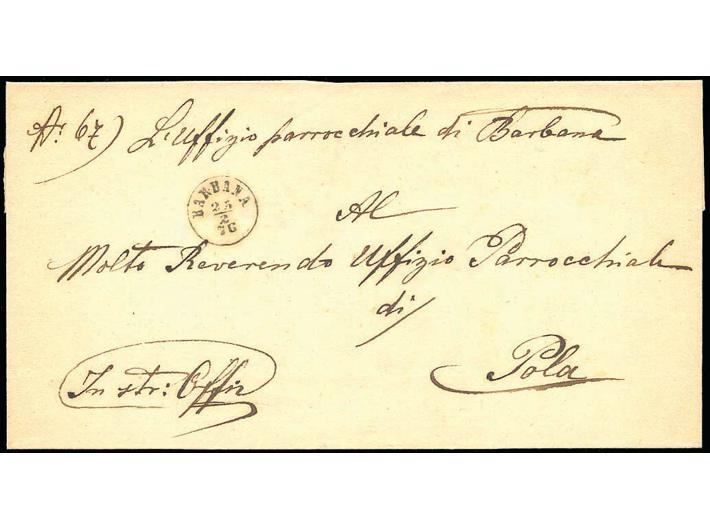 N: 67) L'Uffizio parrocchiale di Barbana
BARBANA
25
2
76
Al
Molto Reverendo Uffizio Parrocchiale
di
Pola
In str: Offic